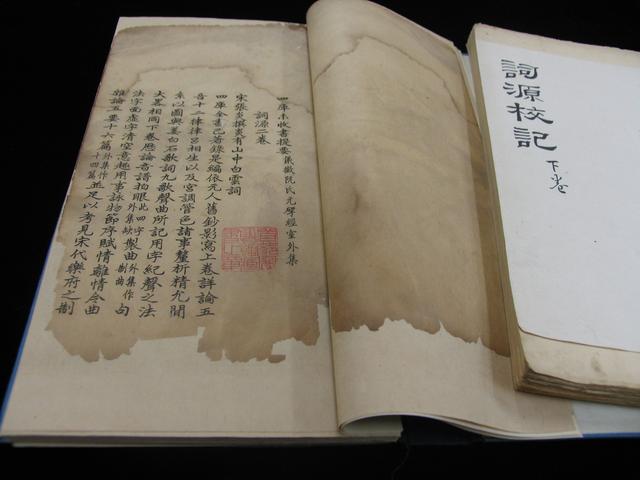 四庫未收書提要儀徵阮氏元揅經室外集
詞源二卷
宋張炎撰炎有山中白雲詞
四庫全書已著錄是編依元人舊鈔影寫上卷詳論五
音十二律律呂相生以及宮調管色諸事釐析精允間
系以圖與姜白石歌詞九歌琴曲所記用字紀聲之法
大畧相同下卷歷論音譜拍眼此四字外集缺製曲外集作制曲句
法字面虛字清空意趣用事詠物節序賦情離情令曲
雜論五要十六篇外集作十四篇並足以考見宋代樂府之制
詞源校記
下卷